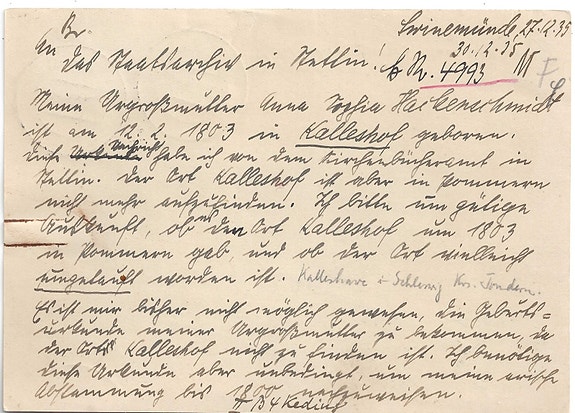 Swinemünde, 27.12.35
30.12.35
An
das Staatsarchiv in Stettin! Nr. 4993
Meine Urgroßmutter Anna Sophia Hackenschmidt
ist am 12. 2. 1803 in Kalleshof geboren.
Diese Urkunde Nachricht habe ich von dem Kirchenbücheramt in
Stettin. Der Ort Kalleshof ist aber in Pommern
nicht mehr aufzufinden. Ich bitte um gütige
Auskunft, ob es den Ort Kalleshof um 1803
in Pommern gab, und ob der Ort vielleicht
umgetauft worden ist. Kalleshave i. Schleswig Krs. Tondern.
Es ist mir bisher nicht möglich gewesen, die Geburts=
urkunde meiner Urgroßmutter zu bekommen, da
der Ort Kalleshof nicht zu finden ist. Ich benötige
diese Urkunde aber unbedingt, um meine arische
Abstammung bis 1800 nachzuweisen.